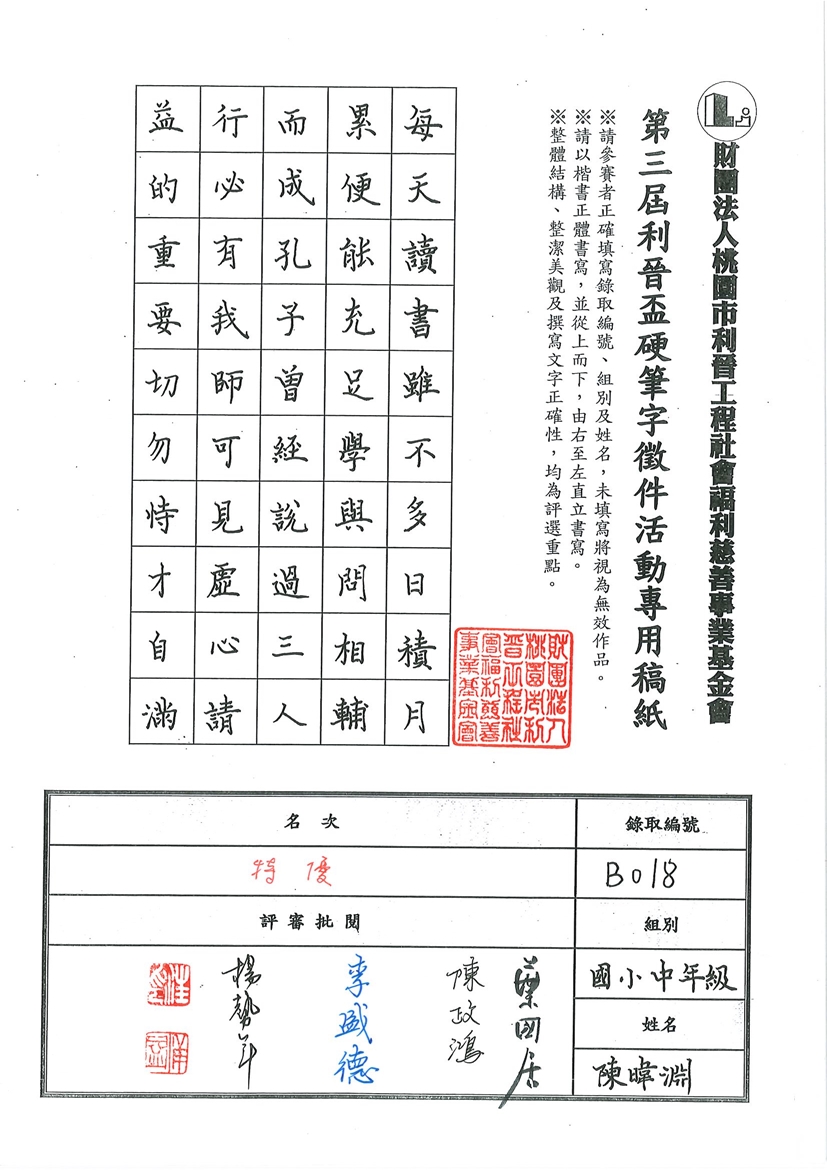 財團法人桃園市利晉工程社會福利慈善事業基金會
第三屆利晉盃硬筆字徵件活動專用稿紙
※請參賽者正確填寫錄取編號、組別及姓名,未填寫將視為無效作品。
※請以楷書正體書寫,並從上而下,由右至左直立書寫。
※整體結構、整潔美觀及撰寫文字正確性,均為評選重點。
每天讀書雖不多日積月
累便能充足學與問相輔
而成孔子曾經說過三人
行必有我師可見虛心請
益的重要切勿恃才自滿
財團法人
桃園市利
晉工程社
會福利慈善
事業基金會
錄取編號
B018
組別
國小中年級
姓名
陳暐淵
名次
特優
評審批閱
葉國居
陳政鴻
李盛德
楊勢年